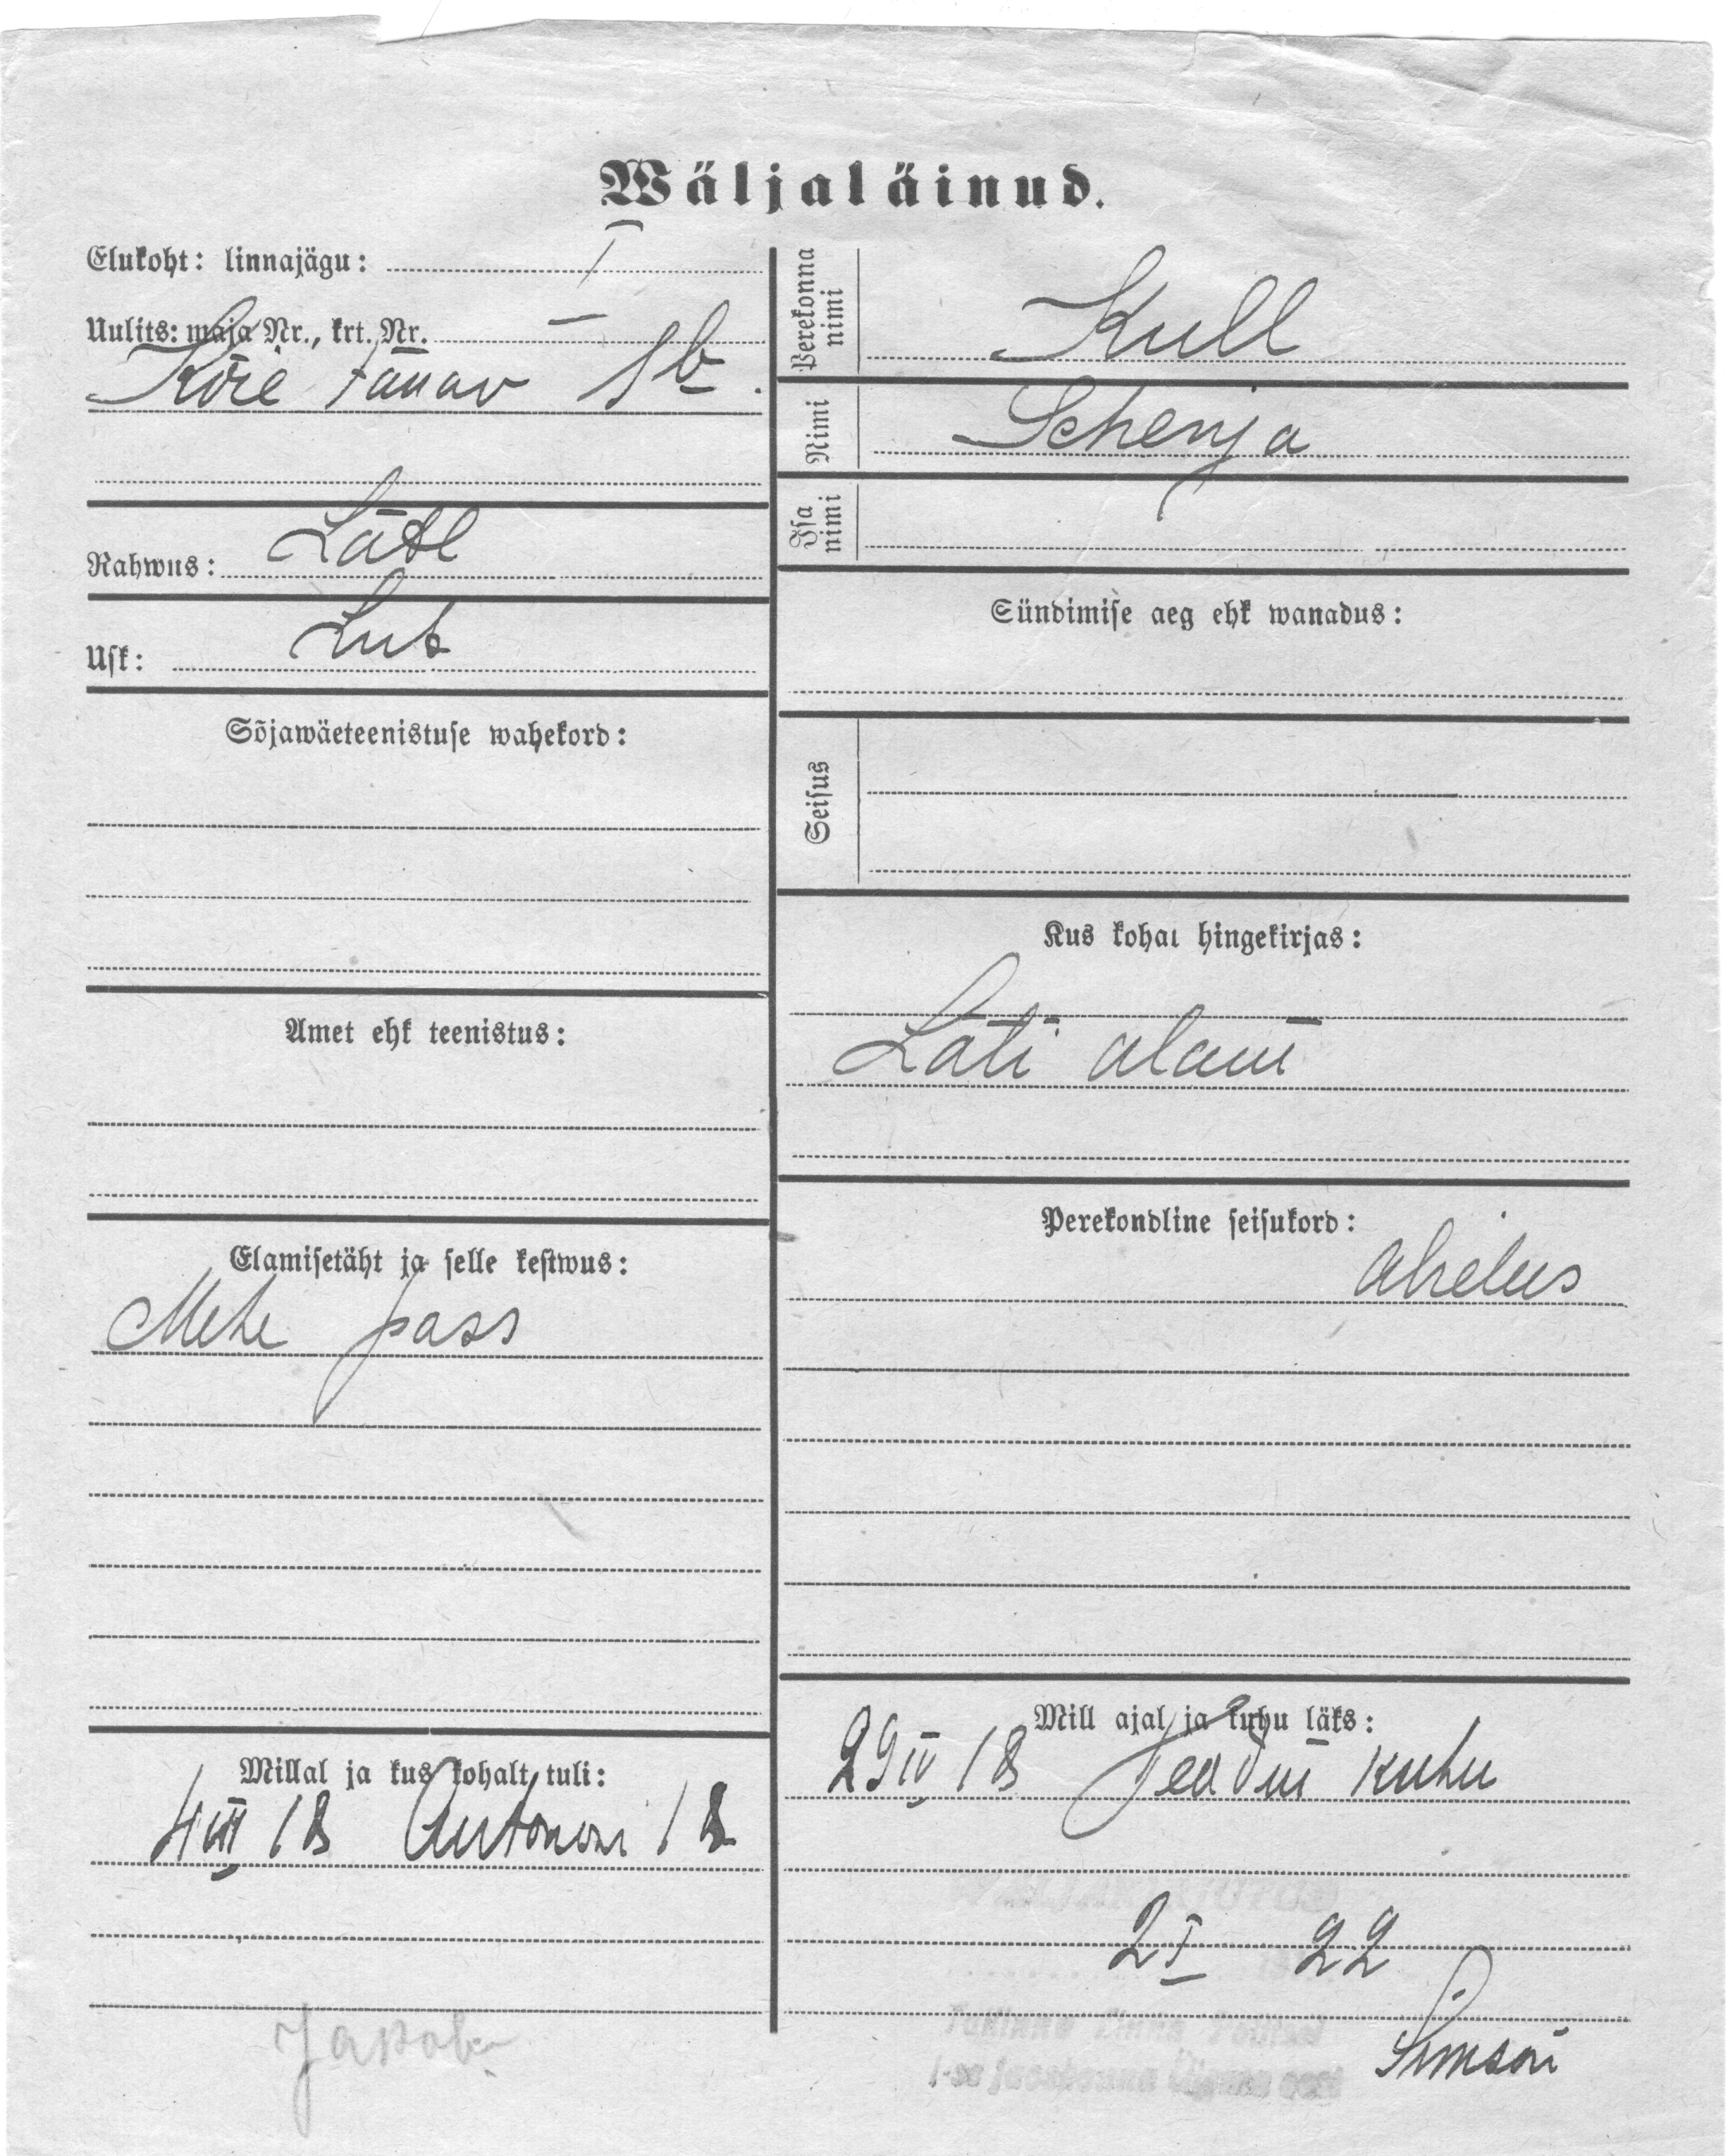 Wäljaläinud.
Elukoht: linnajägu: I
Uulits: maja Nr., krt. Nr.
Kõie tänav 8b.
Rahwus: Lätl
Usk: Lut
Sõjawäeteenistuse wahekord:
Amet ehk teenistus:
Elamisetäht ja selle kestwus:
Mehe pass
Millal ja kus kohalt tuli:
4 III 18 Antoni 18
Perekonna nimi Kull
Nimi Schenja
Isa nimi
Sündimise aeg ehk wanadus:
Seisus
Kus kohal hingekirjas:
Läti alam
Perekondline seisukord:
abielus
Mill ajal ja kuhu läks:
29 IV 18 Teadm kuhu
2 I 22
Simson